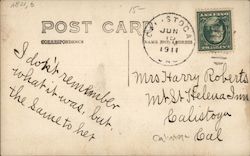 AB21,B
15-
POST CARD
CORRESPONDENCE
NAME AND ADDRESS
CALISTOGA
JUN
1911
CAL.
I don't remember
what it was, but
the Same to her
Mrs Harry Roberts
Mt St Helena Inn
Calistoga
Cal
Calistoga